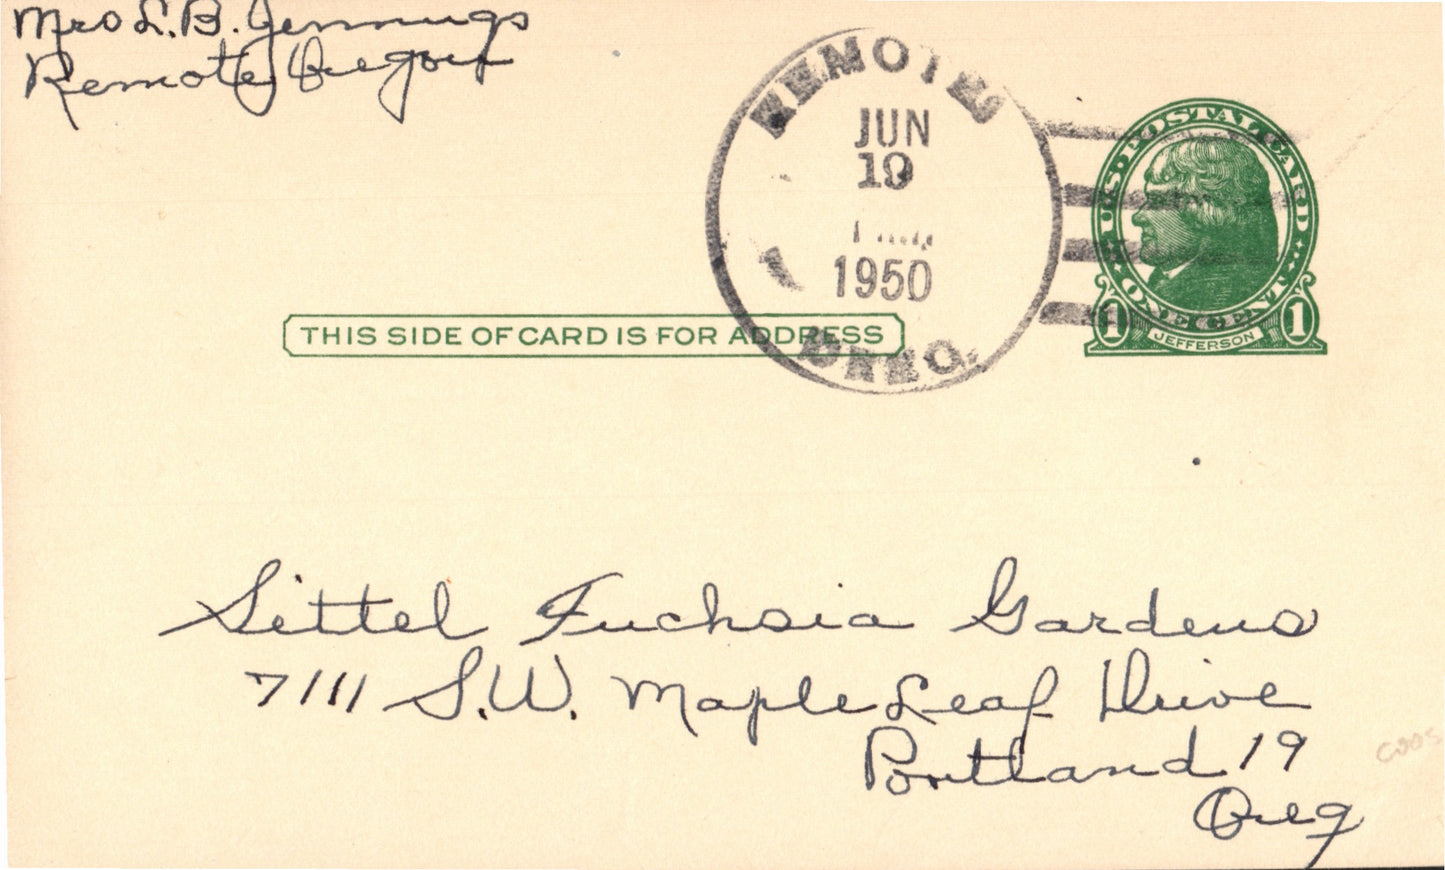 Mrs L.B. Jennings
Remote, Oregon
REMOTE
JUN
19
1950
OREG.
U.S. POSTAL CARD
ONE CENT
1 JEFFERSON 1
THIS SIDE OF CARD IS FOR ADDRESS
Sittel Fuchsia Gardens
7111 S.W. Maple Leaf Drive
Portland 19
Oreg
COOS